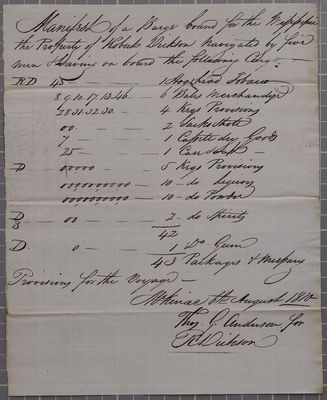 Manifest of a Barge bound for the Mississippi
the Property of Robert Dickson Navigated by five
men & having on board the following Cargo
RD 45 — 1 Hogshead Tobacco
8.9.10.17.13.46 6 Bales Merchandize
28.31.32.30 — 4 Kegs Provisions
00 — 2 Sacks Shot
7 — 1 Cassette dry Goods
25 — 1 Case
D — 00000 — 5 Kegs Provisions
0000000000 — 10 — do Liquors
0000000000 — 10 — do Powder
D — 00 — 2 — do Spirits
42
D. 0 — 1 Do Gum
43 Packages &
Provisions for the Voyage —
August 1810
Thos. G. Anderson for
R. Dickson